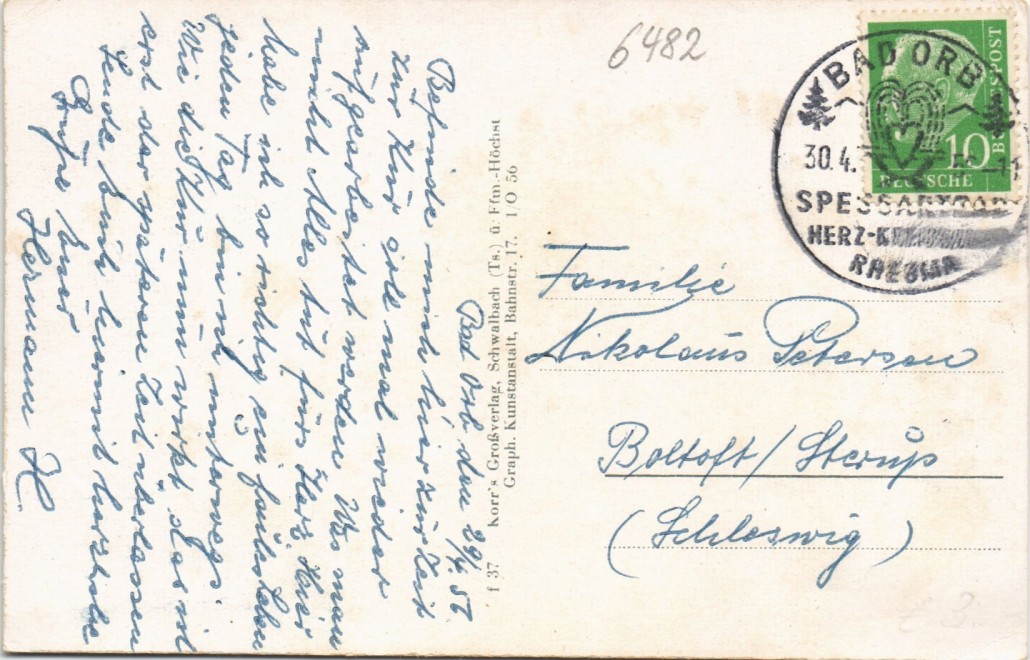 Bad Orb den 29/4.57
Befinde mich hier zur Zeit
zur Kur soll mal wieder
aufgearbeitet werden. Was man
nicht Alles tut fürs Herz. Hier
habe ich so richtig ein faules Leben
jeden Tag bin ich unterwegs.
Wie die Kur nun wirkt das will
erst der späteren Zeit überlassen
Sende Euch hiermit herzliche
Grüße Euer
Hermann H.
f 37 Korr's Großverlag, Schwalbach (Ts.) ü. Ffm.-Höchst
Graph. Kunstanstalt, Bahnstr. 17. 1/O 56
6482
BAD ORB
30.4.
SPESSART
HERZ-
RHEUMA
10
DEUTSCHE
BUNDESPOST
Familie
Nikolaus Petersen
Boltoft / Sterup
(Schleswig)